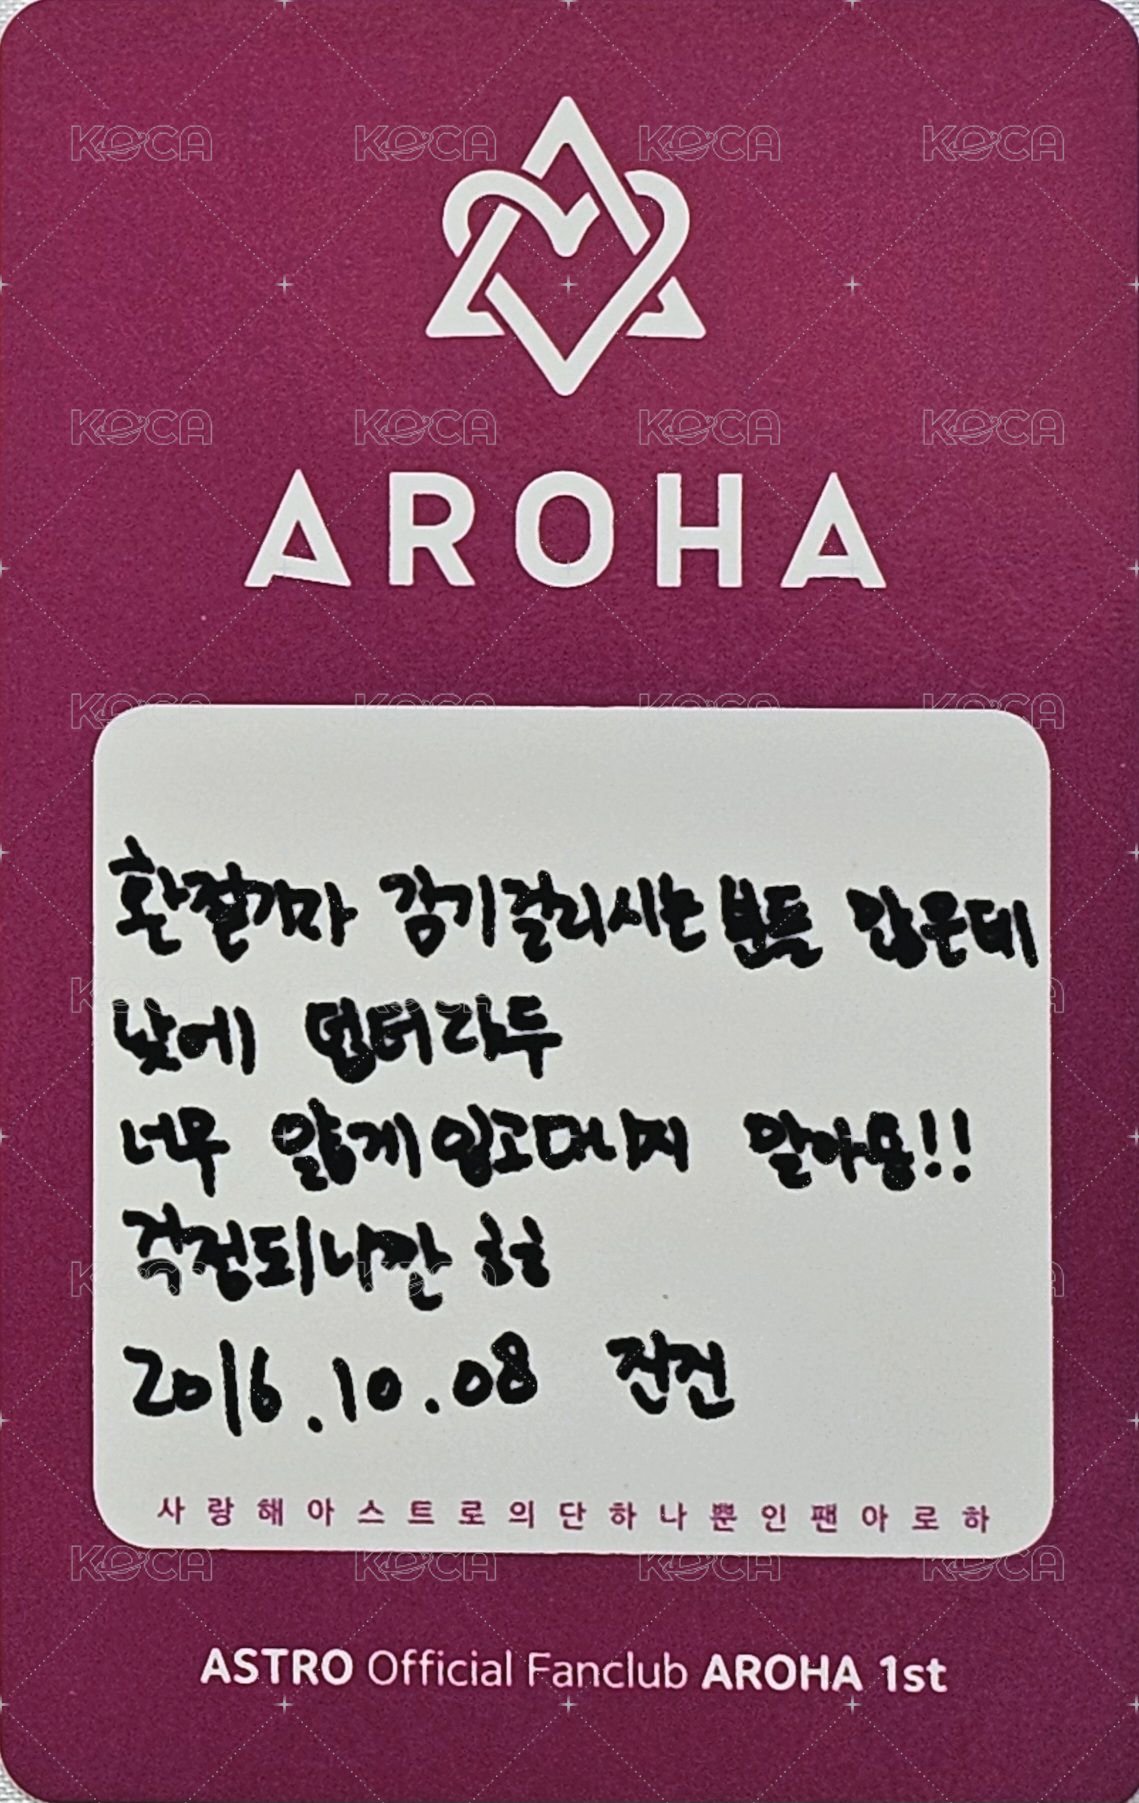 AROHA
환절기마다 감기걸리시는 분들 많은데
낮에 덥더라두
너무 얇게 입고다니지 말아용!!
걱정되니깐 ㅎㅎ
2016.10.08 진진
사랑해아스트로의단하나뿐인팬아로하
ASTRO Official Fanclub AROHA 1st
KOCA